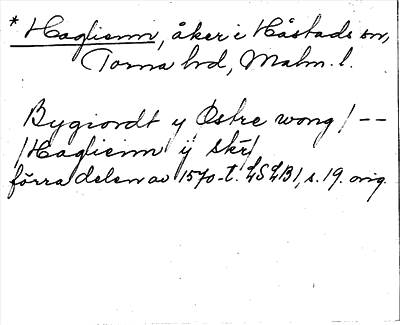 * Haglienn, åker i Håstads sn,
Torna hd, Malm. l.
Bygiordt y Östre wong / --
/ Haglienn ÿ skr/
förra delen av 1570-t. LSLB1, s. 19. orig.